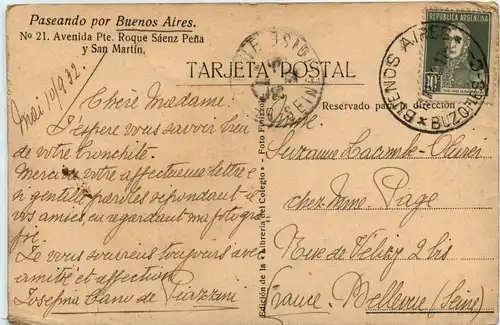 Paseando por Buenos Aires.
No 21. Avenida Pte. Roque Sáenz Peña
y San Martín.
TARJETA POSTAL
Reservado para la dirección
Mai 10/932
Chère Madame:
J'espère vous savoir
de votre bronchite.
Merci de votre affectueuse lettre et
si gentilles paroles répondant à
vos amies, en regardant ma fotogra-
fie.
Je vous souviens toujours avec
amitié et affection
Josefina Cano de Piazzini
Edición de la "Librería del Colegio" - Foto Finizzola
REPUBLICA ARGENTINA
BUENOS AIRES
BUZON
Mme
Suzanne Lacombe
chez Mme. Page
Rue de Vélizy 2 bis
France. Bellevue (Seine)